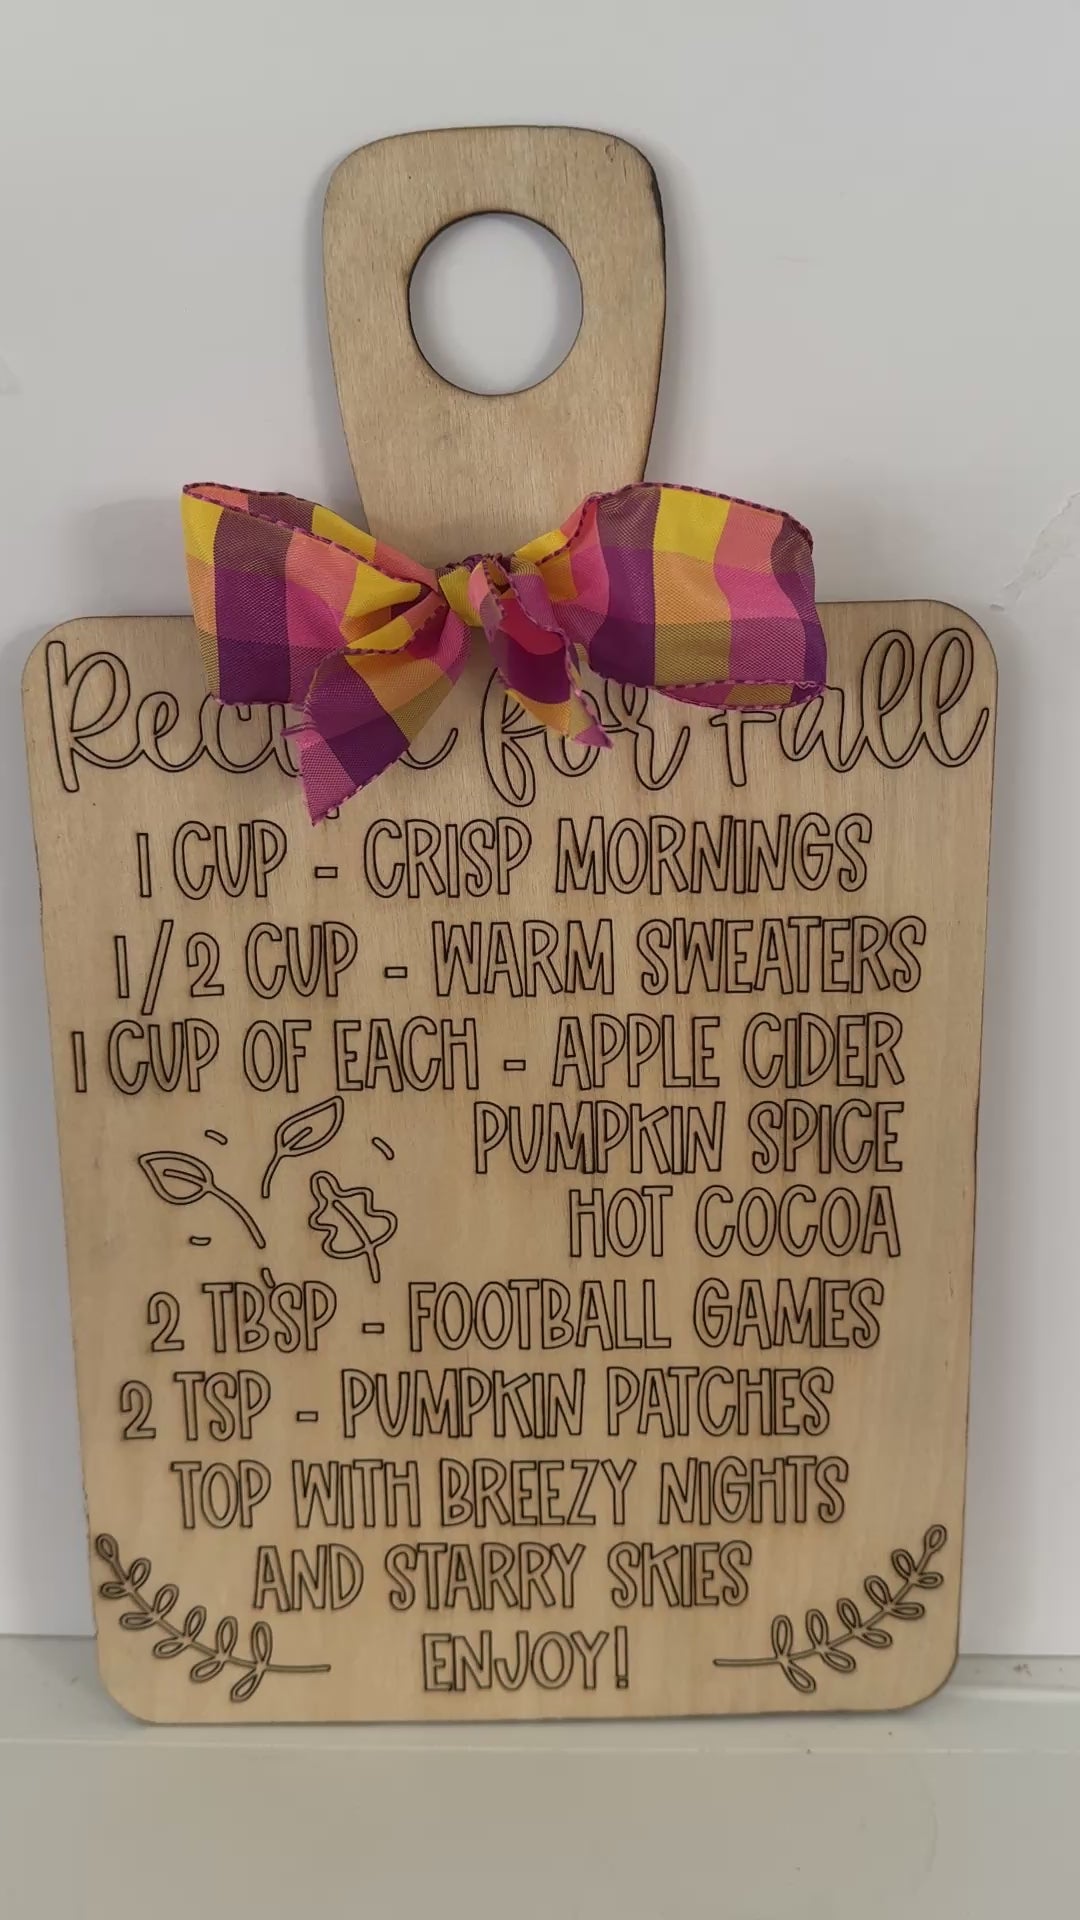 Recipe for Fall
1 CUP - CRISP MORNINGS
1/2 CUP - WARM SWEATERS
1 CUP OF EACH - APPLE CIDER
PUMPKIN SPICE
HOT COCOA
2 TBSP - FOOTBALL GAMES
2 TSP - PUMPKIN PATCHES
TOP WITH BREEZY NIGHTS
AND STARRY SKIES
ENJOY!